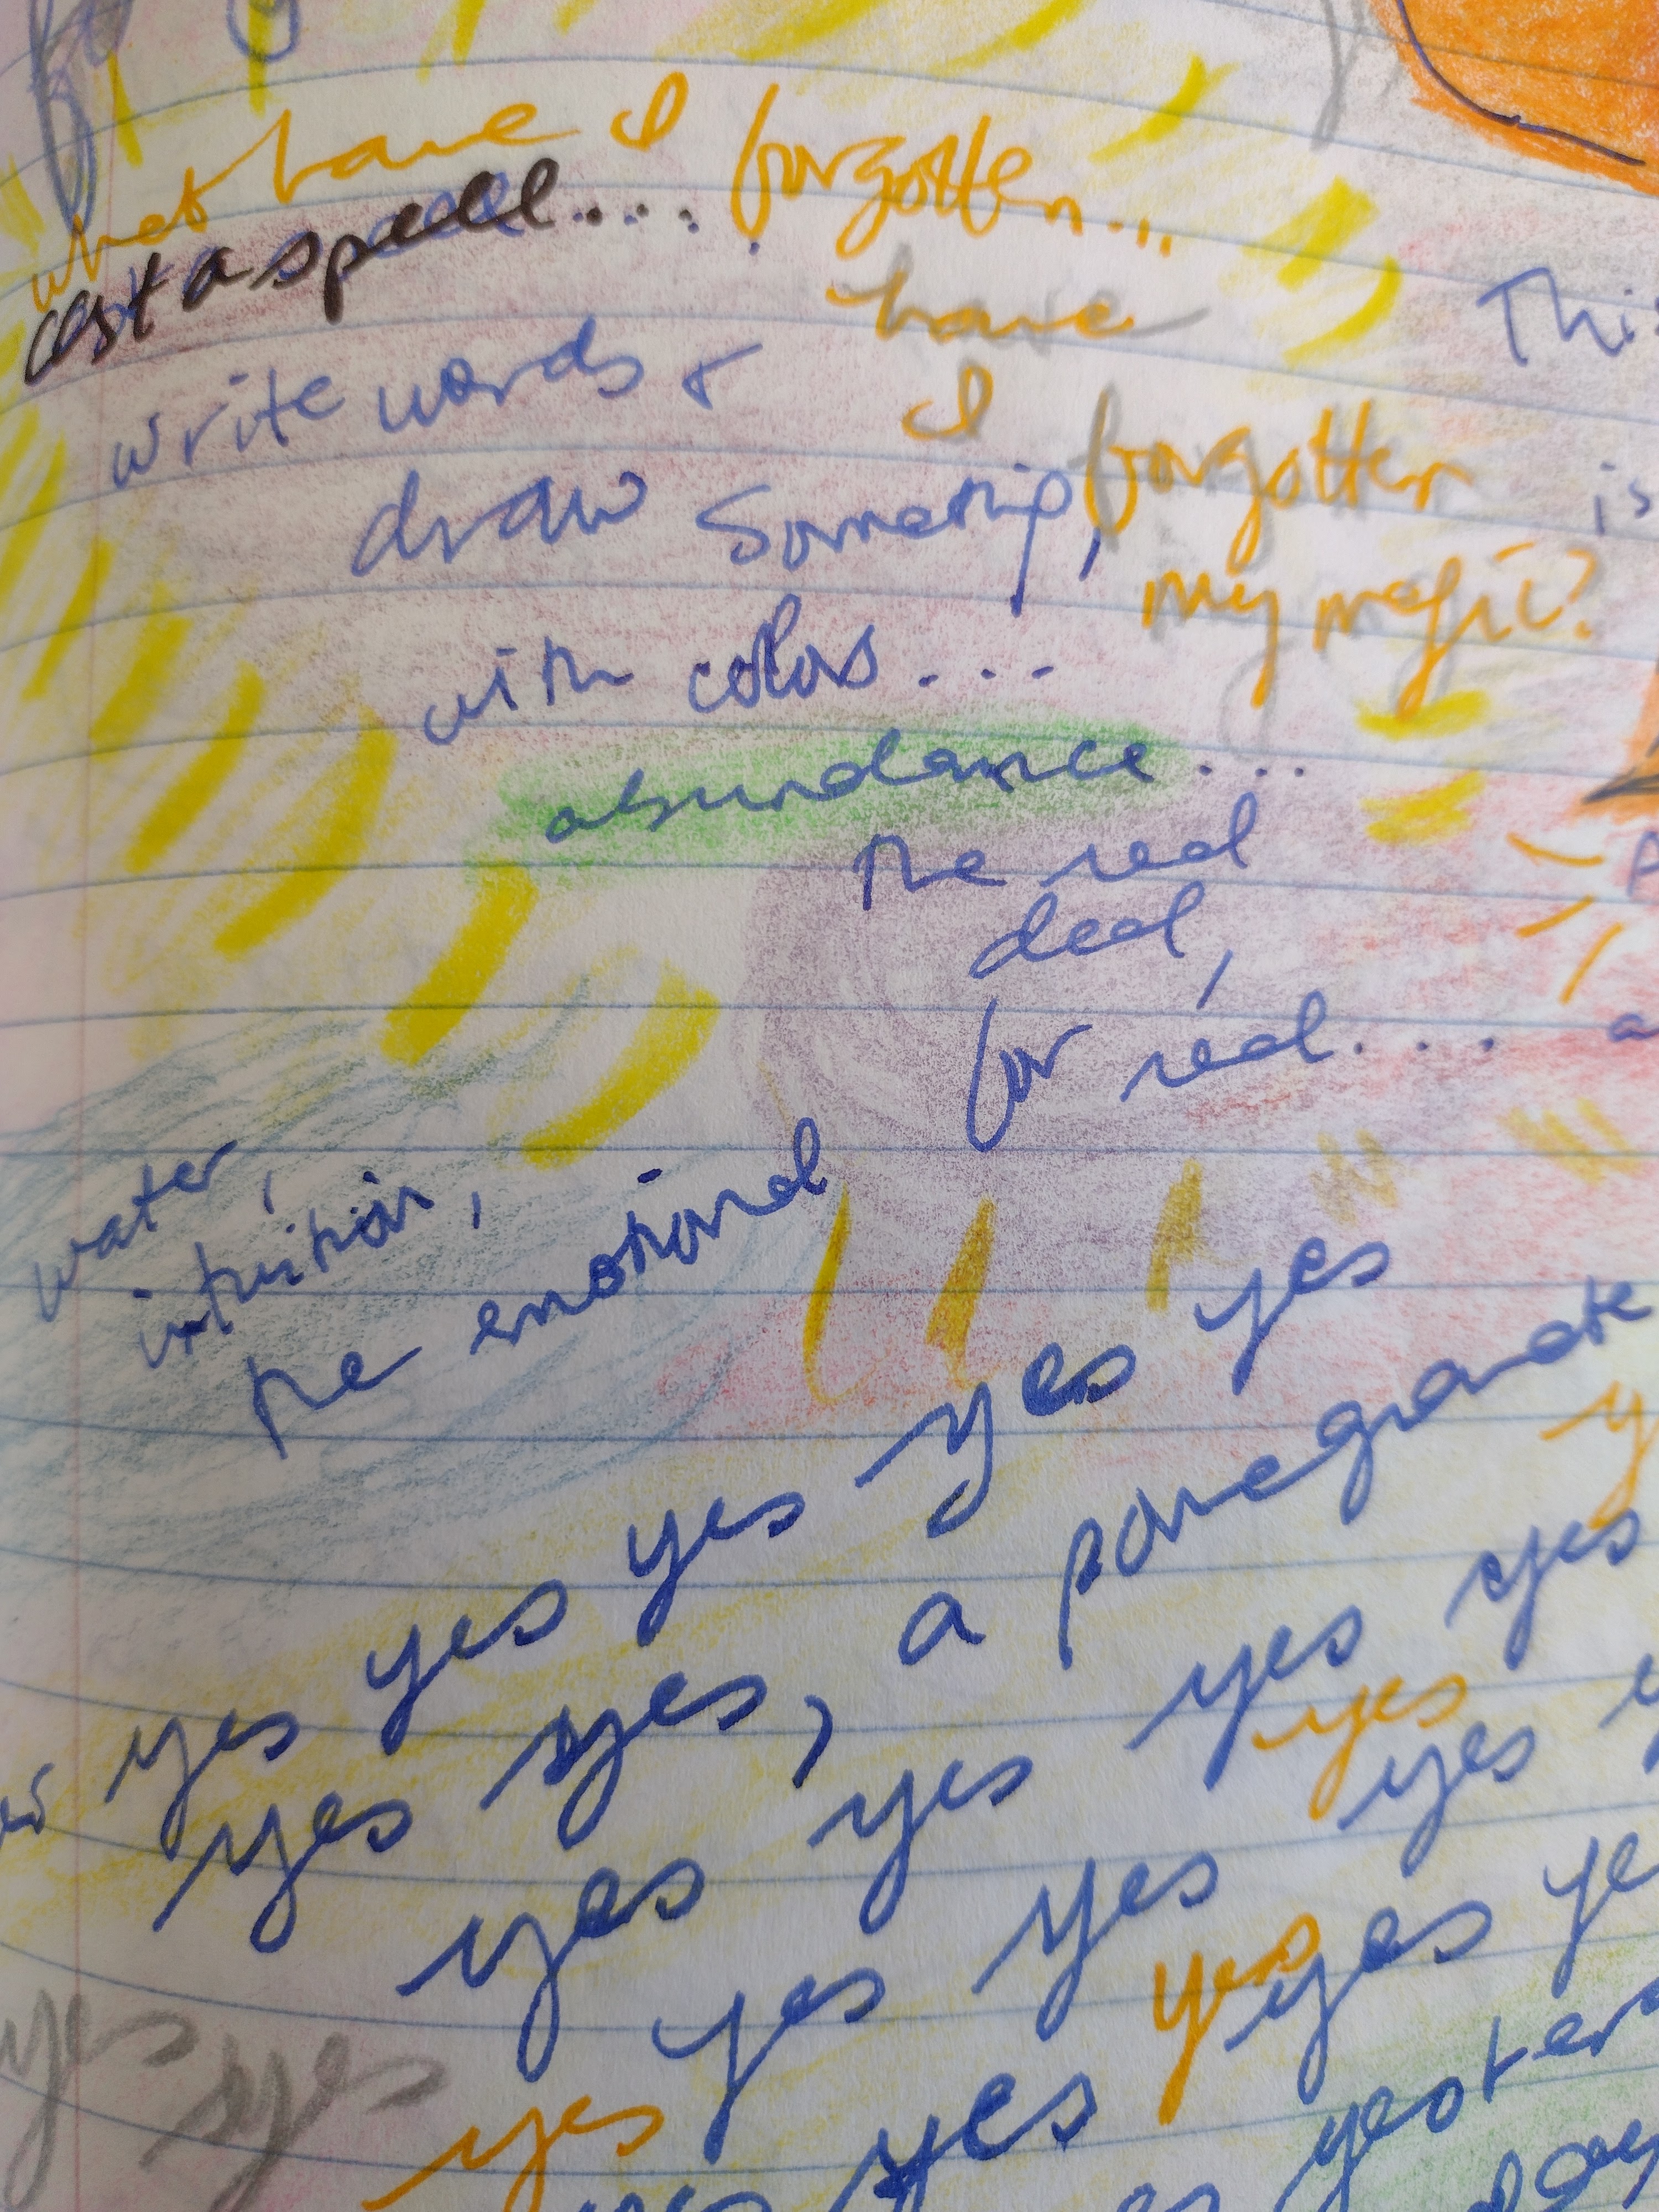 what have I forgotten...
cast a spell....
have
I
forgotten
my magic?
write words &
draw something,
with colors...
This
is
abundance...
the real
deal,
for real...
water,
intuition,
the emotional
yes yes yes yes yes yes
yes yes, a pomegranate
yes yes yes yes
yes
yes yes yes
yes
yes yes
yes yes
yes
yes yester
day